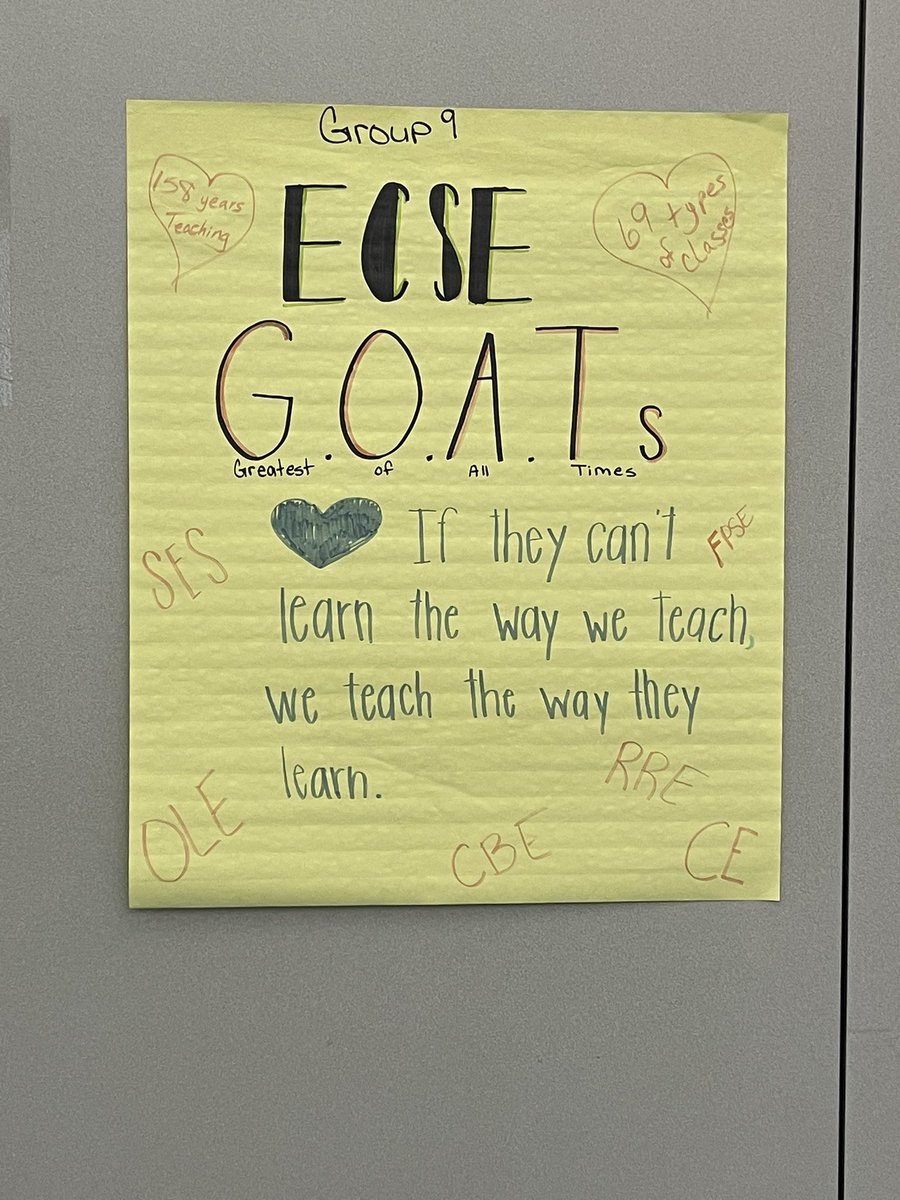 Group 9
158 years
Teaching
69 types
of
classes
ECSE
G.O.A.Ts
Greatest of All Times
If they can't
learn the way we teach,
we teach the way they
learn.
SES
FPSE
RRE
OLE
CBE
CE